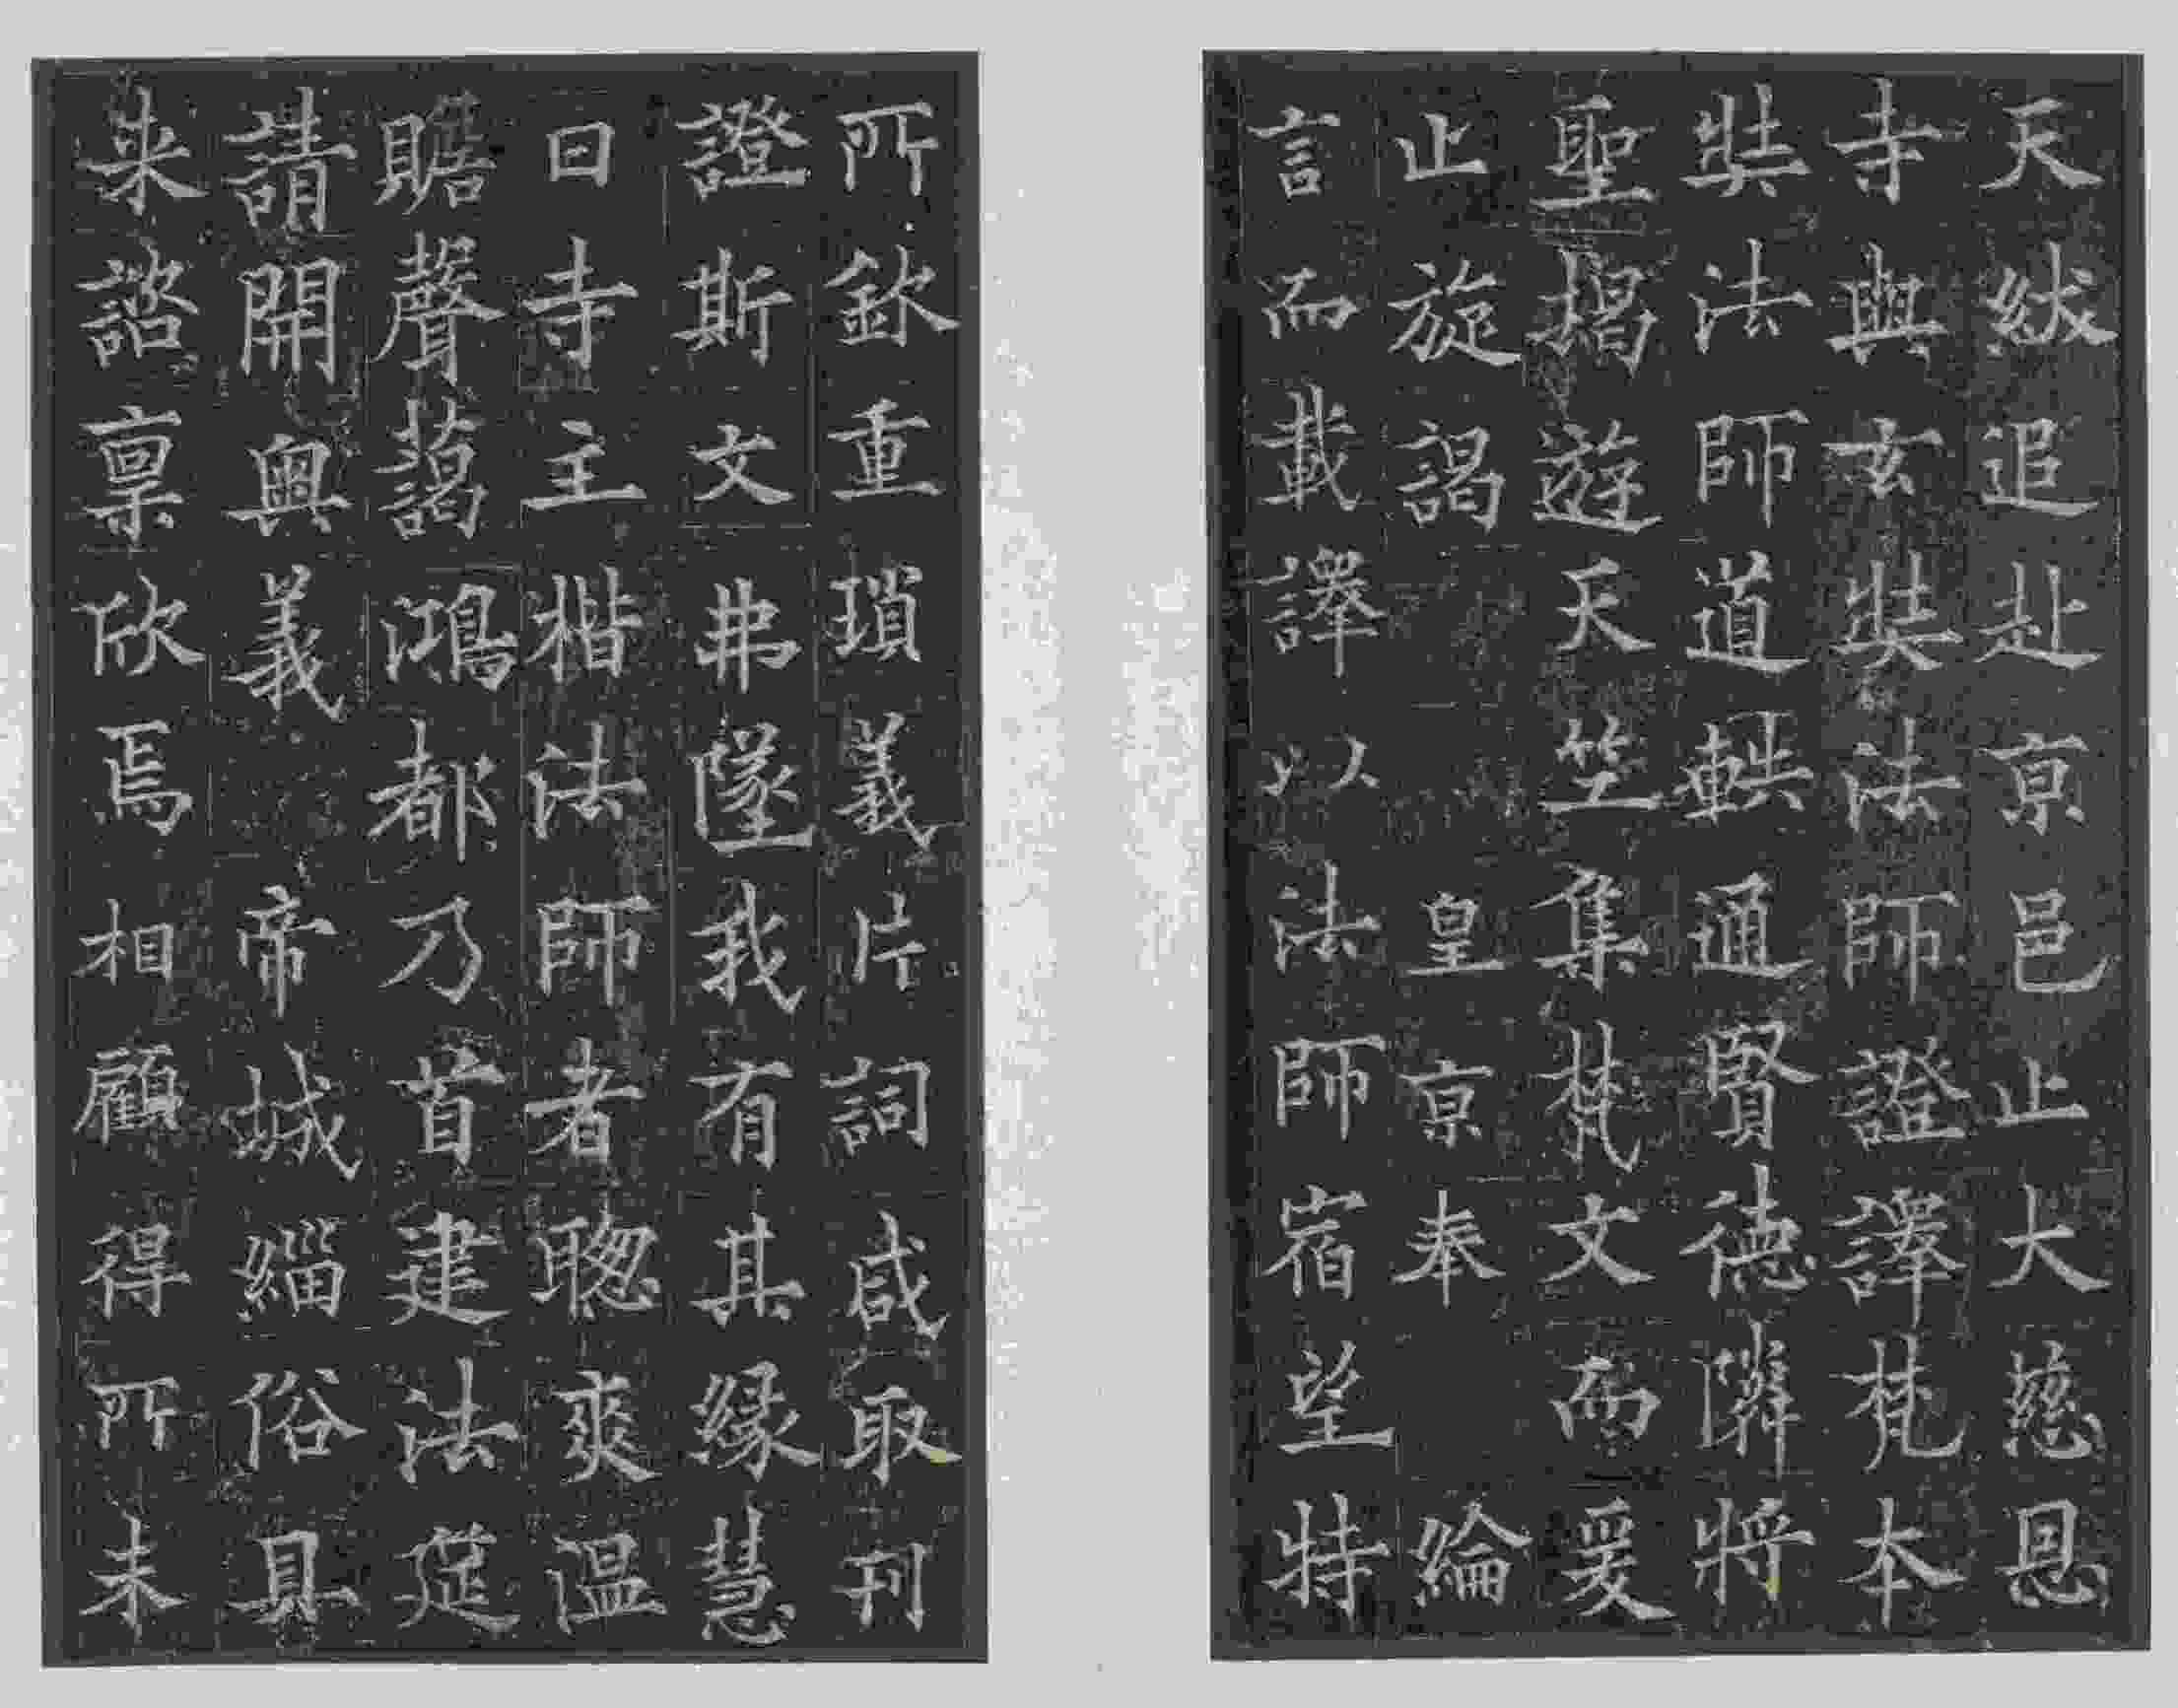 天紱追赴京邑止大慈恩
寺與玄奘法師證譯梵本
奘法師道軼通賢德隣將
聖揭遊天竺集梵文而爰
止旋謁 皇京奉 綸
言而載譯以法師宿望特
所欽重瑣義片詞咸取刊
證斯文弗墜我有其緣慧
日寺主楷法師者聰爽溫
贍聲藹鴻都乃首建法筵
請開奧義 帝城緇俗具
來諮稟欣焉相顧得所未